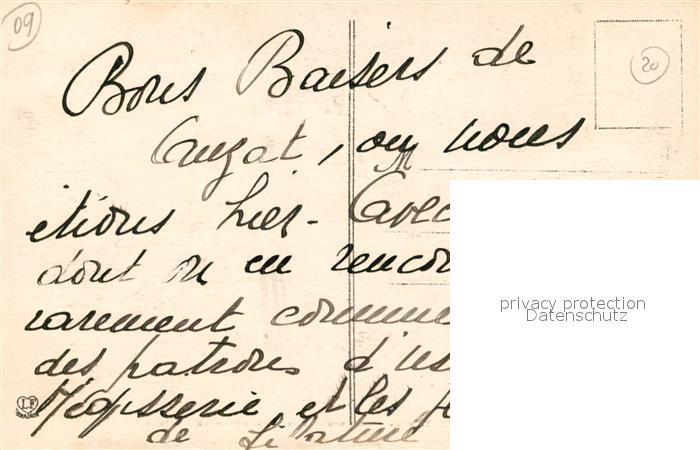 09
20
Bons Baisers de
Auzat, ou nous
etions hier - Avec
dont on en rencon
rarement comme
des patrons d'us
Mégisserie et les f
de filature
privacy protection
Datenschutz